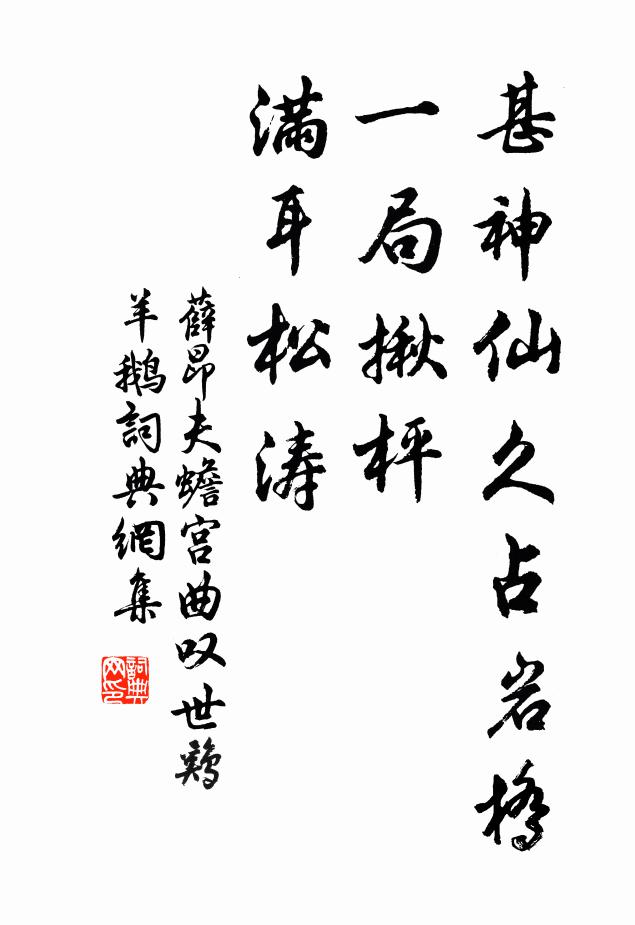 甚神仙久占岩橋
一局揪枰
满耳松涛
薛昂夫蟾宫曲叹世鷄
羊鵝詞典網集
詞典网印